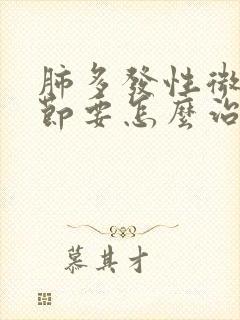 肺多發性微
節要怎麼治
慕其才